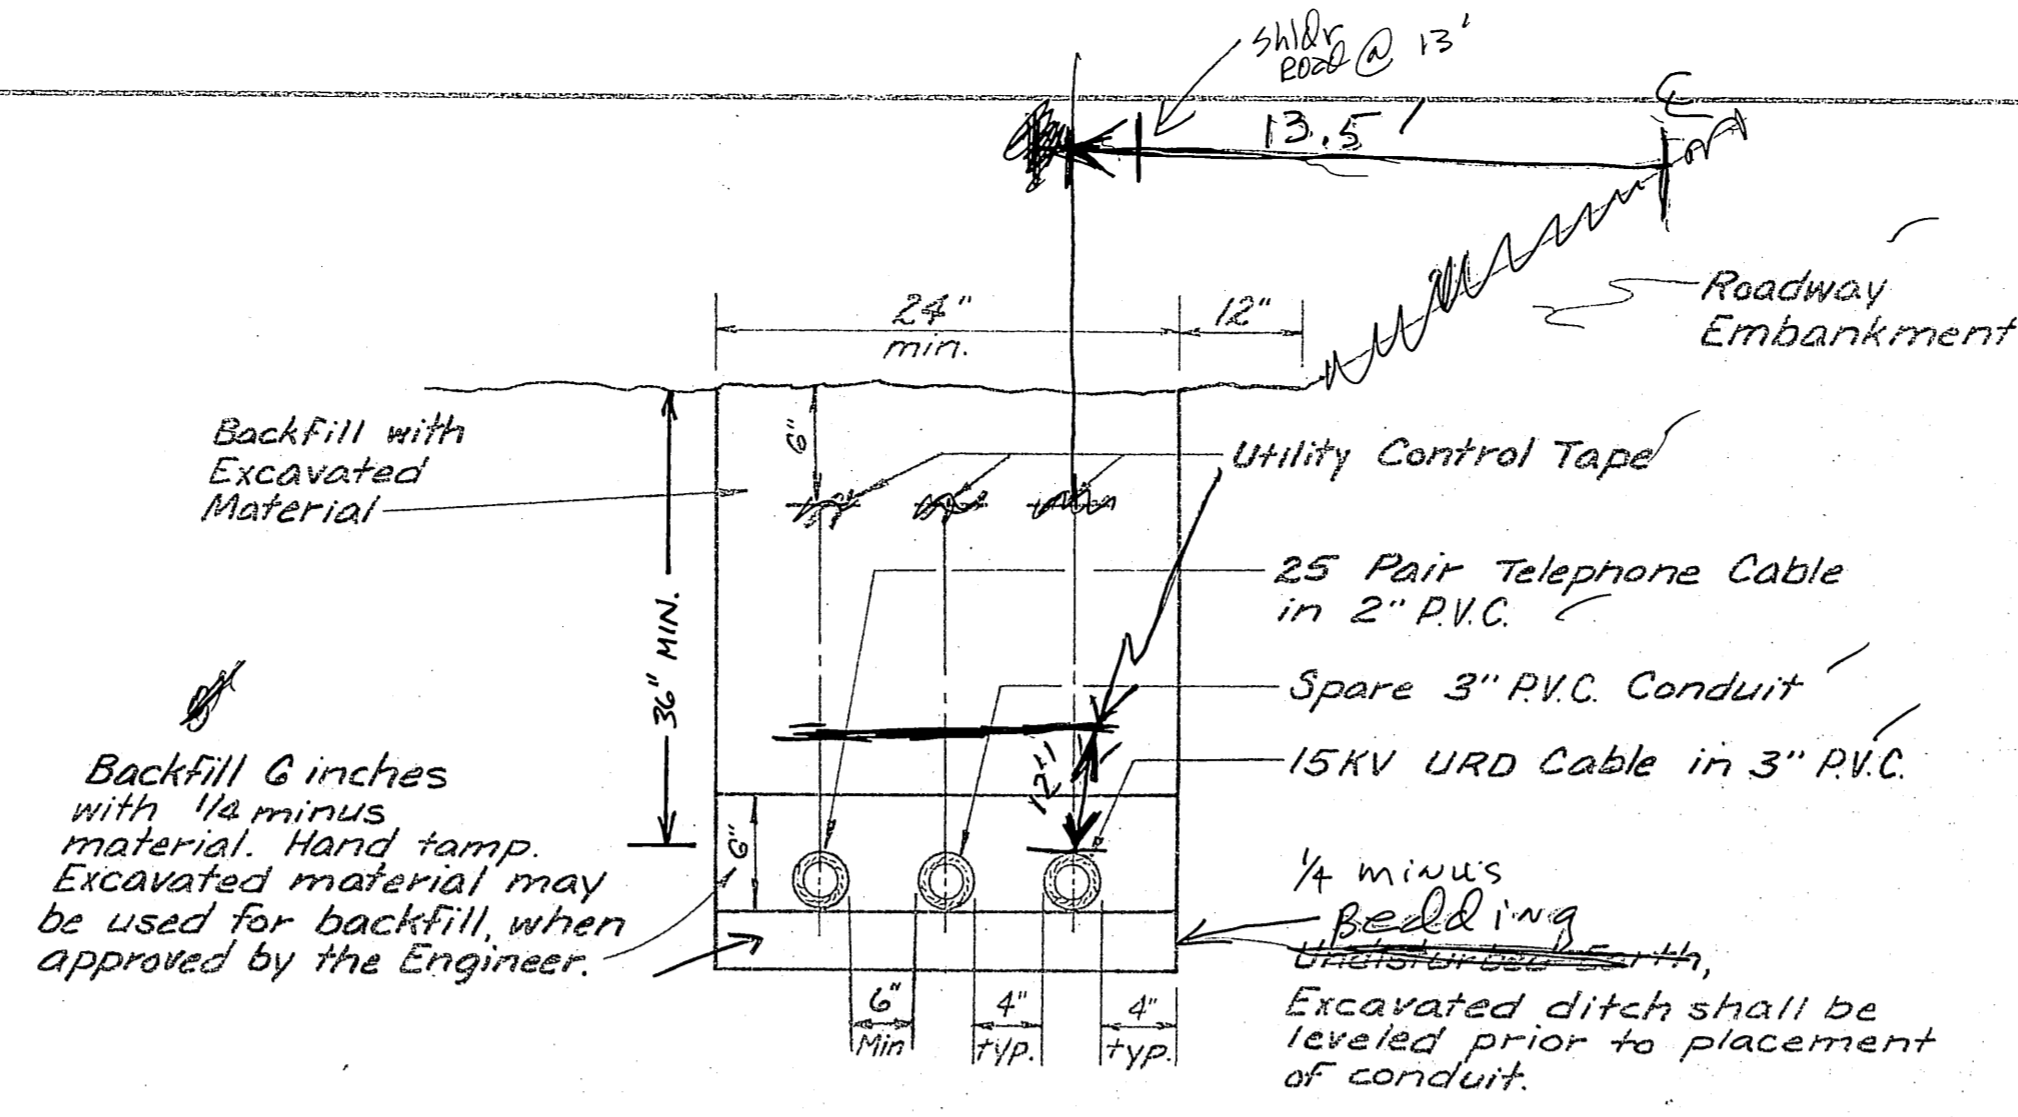 shldr
road @ 13'
℄
13.5'
Roadway
Embankment
24"
min.
12"
6"
Backfill with
Excavated
Material
Utility Control Tape
36" MIN.
25 Pair Telephone Cable
in 2" P.V.C.
Spare 3" P.V.C. Conduit
12"
15KV URD Cable in 3" P.V.C.
Backfill 6 inches
with 1/4 minus
material. Hand tamp.
Excavated material may
be used for backfill, when
approved by the Engineer.
6"
1/4 minus
Bedding
Undisturbed Earth,
Excavated ditch shall be
leveled prior to placement
of conduit.
6"
Min
4"
typ.
4"
typ.